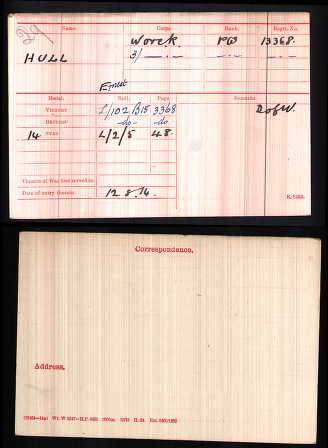 Name. Corps. Rank. Regtl. No.
Worc R. Pte 13368.
HULL 3/ — " — — " —
Ernest
Medal. Roll. Page. Remarks
Victory L/102 B15 3368 P of W.
British -do- do
14 Star L/2/5 48.
Theatre of War first served in
Date of entry therein 12.8.14.
K. 1380.
Correspondence.
Address.